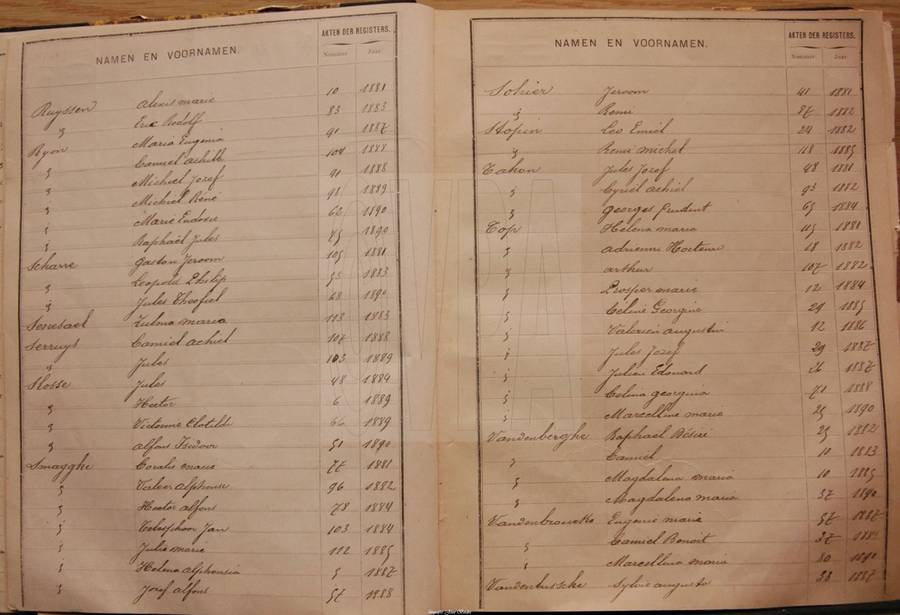 NAMEN EN VOORNAMEN.
AKTEN DER REGISTERS.
Nummer. Jaar.
Ruyssen Alexis marie 10 1881
" Eric Rodolf 83 1883
Ryon Maria Eugenia 91 1887
" Camiel achille 104 1888
" Michiel Jozef 91 1888
" Michiel René 98 1889
" Marie Eudoxie 62 1890
" Raphaël Jules 1890
Scharre Gaston Jeroom 105 1881
" Leopold Philip 1883
" Jules Theofiel 68 1890
Senesael Zulma maria 113 1883
Serruys Camiel achiel 107 1888
" Jules 103 1889
Slosse Jules 48 1884
" Hector 6 1889
" Victorine Clotilde 66 1889
" alfons Isidoor 51 1890
Smagghe Coralie marie 77 1881
" Valeer alphonse 96 1882
" Hector alfons 78 1884
" Telesphoor Jan 103 1884
" Julie marie 112 1885
" Helena alphonsia 5 1887
" Jozef alfons 57 1888
NAMEN EN VOORNAMEN.
AKTEN DER REGISTERS.
Nummer. Jaar.
Sohier Jeroom 41 1881
" Remi 87 1882
Stopin Leo Emiel 24 1882
" Remi michel 118 1885
Tahon Jules Jozef 48 1881
" Cyriel achiel 93 1882
" georges Prudent 65 1884
Top Helena maria 115 1881
" adrienne Hortense 18 1882
" arthur 107 1882
" Prosper marie 12 1884
" Celine Georgine 29 1885
" Valerien augustin 12 1886
" Jules Jozef 29 1887
" Julien Edouard 26 1887
" Celina georgina 71 1888
" Marcelline marie 25 1890
Vandenberghe Raphaël Désiré 25 1882
" Camiel 10 1883
" Magdalena maria 10 1885
" Magdalena maria 37 1890
Vandenbroucke Eugenie marie 57 1887
" Camiel Benoit 37
" Marcelline maria 80 1890
Vandenbussche Sylvie augusta 38 1887